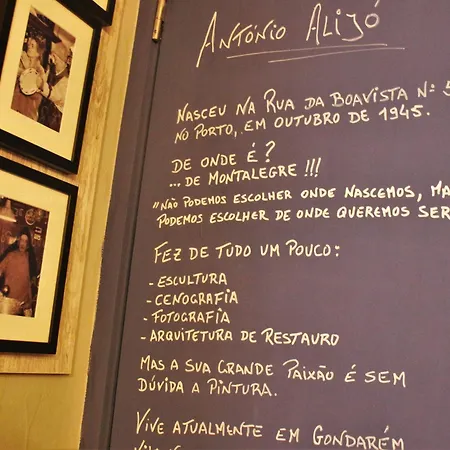 António Alijó
Nasceu na Rua da Boavista Nº 5
no Porto, em Outubro de 1945.
De onde é?
... de Montalegre !!!
"Não podemos escolher onde nascemos, ma
podemos escolher de onde queremos ser
Fez de tudo um pouco:
- Escultura
- Cenografia
- Fotografia
- Arquitetura de Restauro
Mas a sua grande paixão é sem
dúvida a pintura.
Vive atualmente em Gondarém